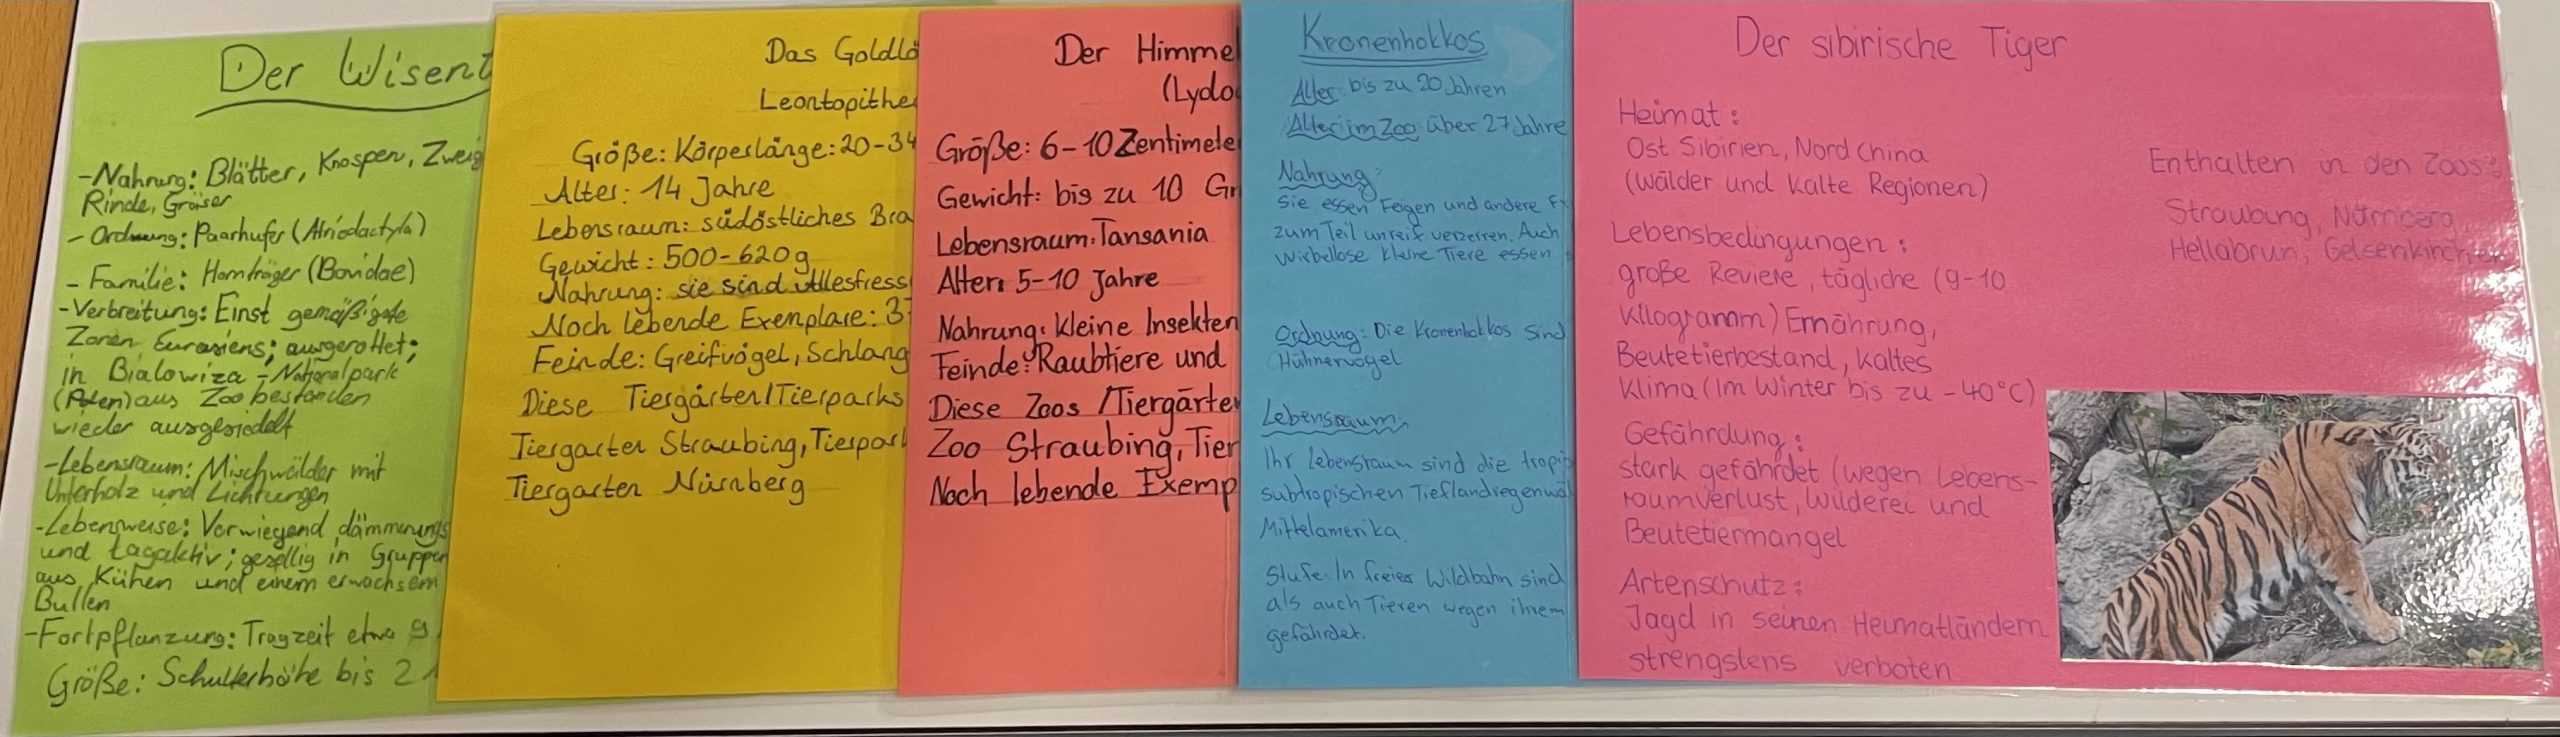 Der Wisent
-Nahrung: Blätter, Knospen, Zweig
Rinde, Gräser
- Ordnung: Paarhufer (Atriodactyla)
- Familie: Hornträger (Bovidae)
-Verbreitung: Einst gemäßigte
Zonen Eurasiens; ausgerottet;
in Bialowiza-Nationalpark
(Polen) aus Zoobeständen
wieder ausgesiedelt
-Lebensraum: Mischwälder mit
Unterholz und Lichtungen
-Lebensweise: Vorwiegend dämmerungs
und tagaktiv; gesellig in Gruppen
aus Kühen und einem erwachsem
Bullen
-Fortpflanzung: Tragzeit etwa 9
Größe: Schulterhöhe bis 2
Das Goldlö
Leontopithe
Größe: Körperlänge: 20-34
Alter: 14 Jahre
Lebensraum: südöstliches Bra
Gewicht: 500-620g
Nahrung: sie sind Allesfress
Noch lebende Exemplare: 3
Feinde: Greifvögel, Schlang
Diese Tiergärten/Tierparks
Tiergarten Straubing, Tierpar
Tiergarten Nürnberg
Der Himmel
(Lydo
Größe: 6-10 Zentimete
Gewicht: bis zu 10 Gr
Lebensraum: Tansania
Alter: 5-10 Jahre
Nahrung: Kleine Insekten
Feinde: Raubtiere und
Diese Zoos /Tiergärte
Zoo Straubing, Tier
Noch lebende Exemp
Kronenhokkos
Alter: bis zu 20 Jahren
Alter im Zoo: über 27 Jahre
Nahrung:
Sie essen Feigen und andere F
zum Teil unreif verzerren. Auch
Wirbellose kleine Tiere essen s
Ordnung: Die Kronenhokkos sind
Hühnervögel
Lebensraum:
Ihr Lebensraum sind die tropi
subtropischen Tieflandregenwäl
Mittelamerika.
Stufe: In freier Wildbahn sind
als auch Tieren wegen ihrem
gefährdet.
Der sibirische Tiger
Heimat:
Ost Sibirien, Nord China
(Wälder und kalte Regionen)
Lebensbedingungen:
große Reviere, tägliche (9-10
Kilogramm) Ernährung,
Beutetierbestand, kaltes
Klima (Im Winter bis zu -40°C)
Gefährdung:
stark gefährdet (wegen Lebens-
raumverlust, Wilderei und
Beutetiermangel
Artenschutz:
Jagd in seinen Heimatländern
strengstens verboten
Enthalten in den Zoos:
Straubing, Nürnberg,
Hellabrun, Gelsenkirchen